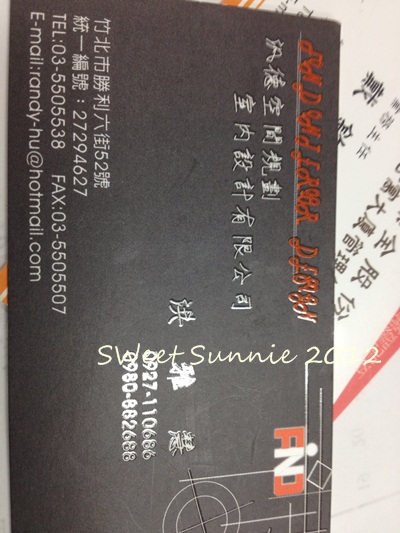 汎德空間規劃
室內設計有限公司
洪雅慧
0927-110686
0980-882688
竹北市勝利六街52號
統一編號：27294627
TEL:03-5505538 FAX:03-5505507
E-mail:randy-hu@hotmail.com
FIND
SWeet Sunnie 2012